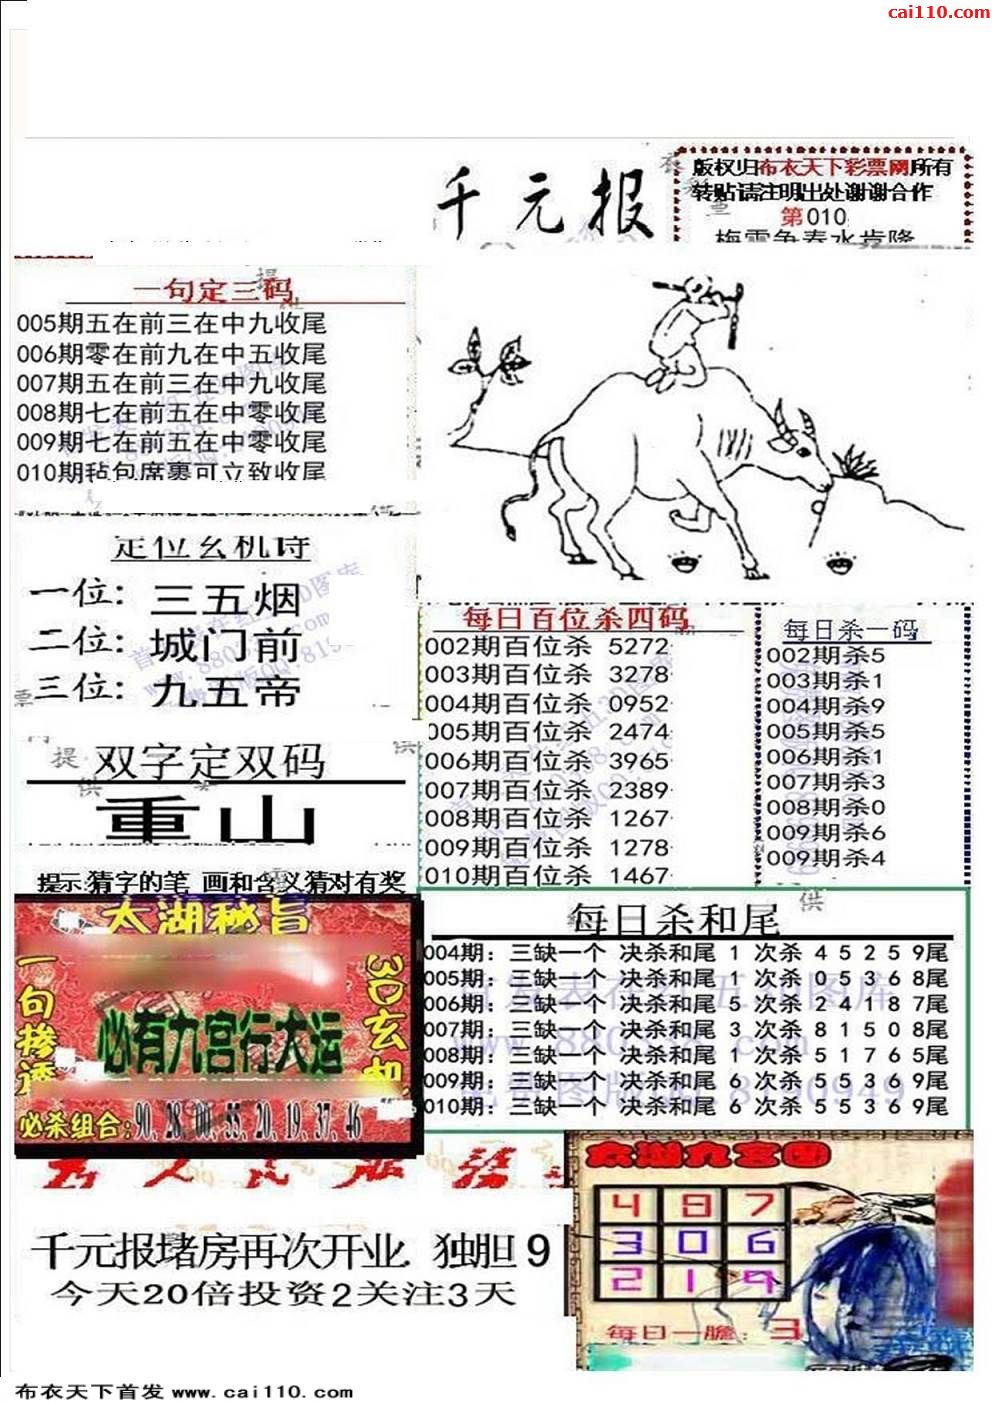 cai110.com
千元报
版权归布衣天下彩票网所有
转贴请注明出处谢谢合作
第010
梅雪争春水肯降
一句定三码
005期五在前三在中九收尾
006期零在前九在中五收尾
007期五在前三在中九收尾
008期七在前五在中零收尾
009期七在前五在中零收尾
010期毡包席裹可立致收尾
定位玄机诗
一位：三五烟
二位：城门前
三位：九五帝
双字定双码
重山
提示:猜字的笔 画和含义猜对有奖
每日百位杀四码
002期百位杀 5272
003期百位杀 3278
004期百位杀 0952
005期百位杀 2474
006期百位杀 3965
007期百位杀 2389
008期百位杀 1267
009期百位杀 1278
010期百位杀 1467
每日杀一码
002期杀5
003期杀1
004期杀9
005期杀5
006期杀1
007期杀3
008期杀0
009期杀6
009期杀4
太湖秘旨
一句掺透
3D玄机
必有九宫行大运
必杀组合:90, 28, 00, 55, 20, 19, 37, 46
每日杀和尾
004期：三缺一个 决杀和尾 1 次杀 4 5 2 5 9尾
005期：三缺一个 决杀和尾 1 次杀 0 5 3 6 8尾
006期：三缺一个 决杀和尾 5 次杀 2 4 1 8 7尾
007期：三缺一个 决杀和尾 3 次杀 8 1 5 0 8尾
008期：三缺一个 决杀和尾 4 次杀 5 1 7 6 5尾
009期：三缺一个 决杀和尾 6 次杀 5 5 3 6 9尾
010期：三缺一个 决杀和尾 6 次杀 5 5 3 6 9尾
千元报堵房再次开业. 独胆 9
今天20倍投资2关注3天
太湖九宫图
4 9 7
3 0 6
2 1 9
每日一胆：3
布衣天下首发 www.cai110.com